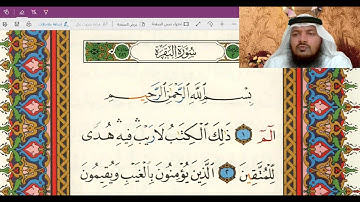 سُورَةُ البَقَرَةِ
بِسْمِ ٱللَّهِ ٱلرَّحْمَٰنِ ٱلرَّحِيمِ
الٓمٓ ١ ذَٰلِكَ ٱلْكِتَٰبُ لَا رَيْبَ ۛ فِيهِ ۛ هُدًى
لِّلْمُتَّقِينَ ٢ ٱلَّذِينَ يُؤْمِنُونَ بِٱلْغَيْبِ وَيُقِيمُونَ